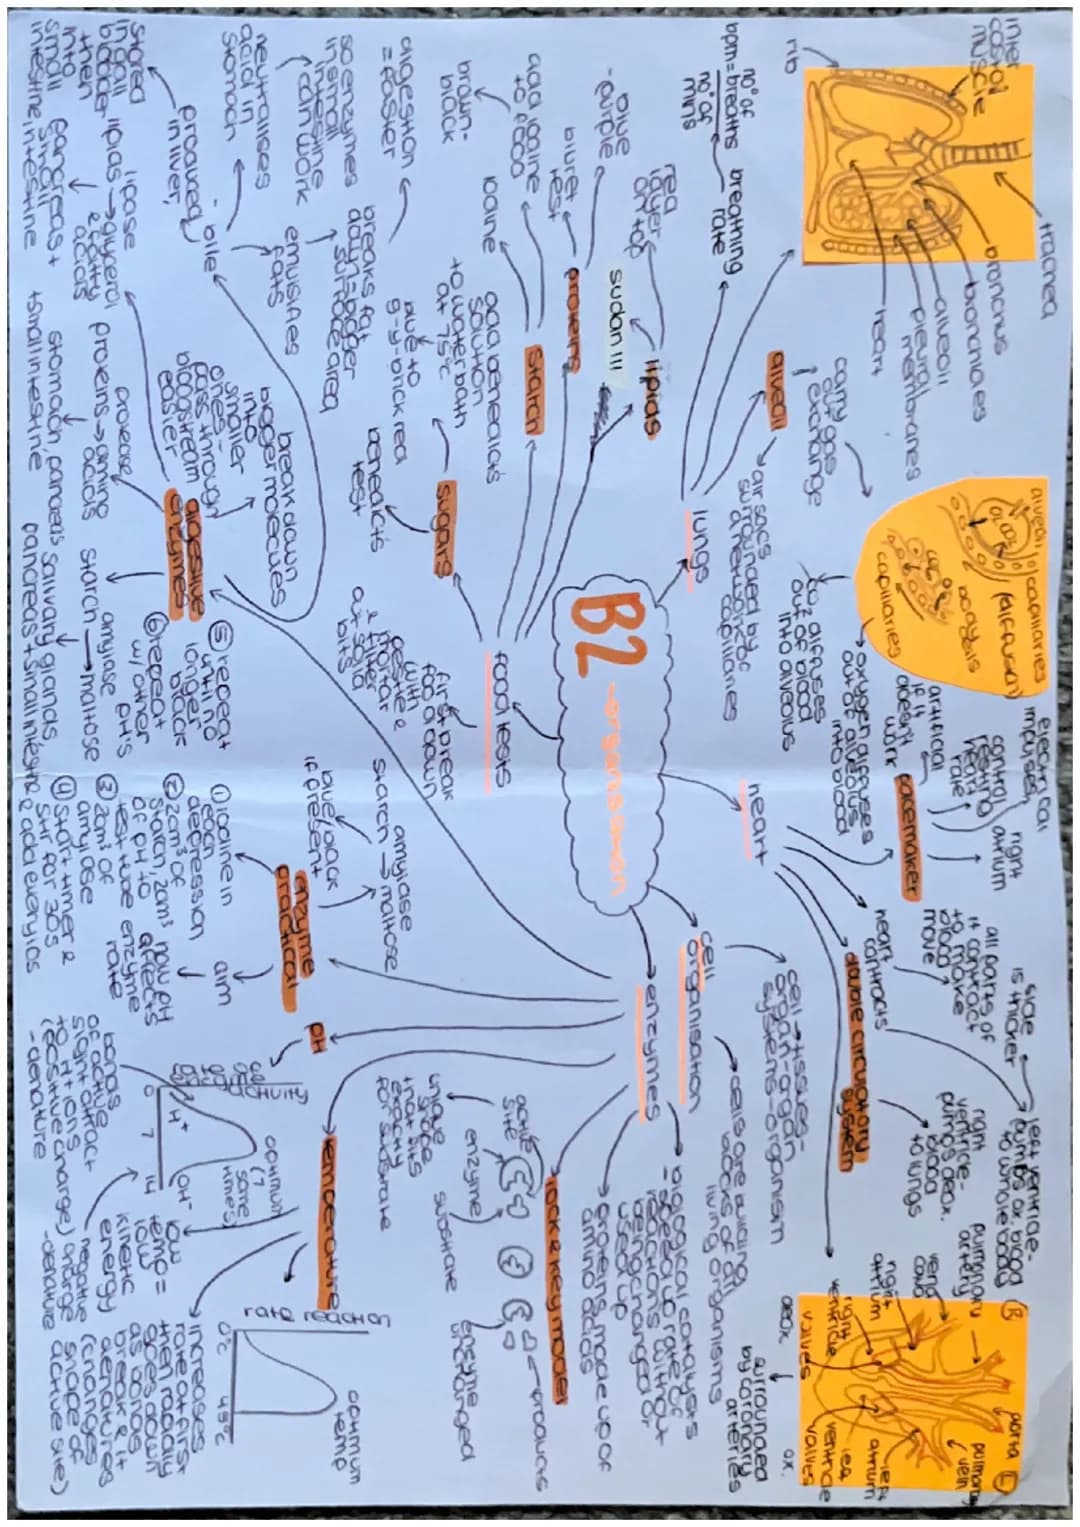 B2 - organisation
lungs
inter
costal
muscle
rib
trachea
bronchus
bronchioles
alveoli
pleural
membranes
heart
breathing
rate
bpm = no° of breaths
no° of mins
alveoli
carry out gas
exchange
air sacs
surrounded by
a network of
capillaries
alveoli
capillaries
capillaries
co2 diffuses
out of blood
into alveolus
oxygen diffuses
out of alveolus
into blood
heart
pacemaker
electrical
impulses
control
resting
heart
rate
right
atrium
artificial
if it
doesn't
work
heart
contracts
all parts of
it contract
to make
blood
move
double circulatory
system
left ventricle -
pumps ox. blood
to whole body
side
is thicker
right
ventricle -
pumps deox.
blood
to lungs
pulmonary
artery
vena
cava
right
atrium
right
ventricle
valves
aorta
pulmonary
vein
left
atrium
left
ventricle
valves
R
L
deox.
ox.
surrounded
by coronary
arteries
cell
organisation
cell → tissues -
organ - organ
systems - organism
cells are building
blocks of all
living organisms
enzymes
biological catalysts
= speed up rate of
reactions without
being changed or
used up
proteins, made up of
amino acids
lock & key model
active
site
unique
shape
that fits
exactly
for substrate
enzyme
substrate
products
enzyme
unchanged
temperature
low
temp =
low
kinetic
energy
increases
rate at first
then rapidly
goes down
as bonds
break & it
denatures
(changes
shape of
active site)
rate reaction
0°c
45°c
optimum
temp
pH
optimum
(7
some
times)
0
7
14
H+
OH-
bonds
of active
site attract
to H+ ions
(positive charge)
- denature
negative
charge
- denature
enzyme
practical
aim
how pH
affects
enzyme
rate
amylase
starch → maltose
blue/black
if present
① iodine in
each
depression
② 2cm³ of
starch, 2cm³
of pH to
test tube
③ 2cm³ of
amylase
④ start timer &
stir for 30s
& add every 10s
⑤ repeat
until no
longer
black
⑥ repeat
w/ other
pH's
digestive
enzymes
break down
bigger molecules
into
smaller
ones -
pass through
bloodstream
easier
amylase
starch → maltose
salivary glands,
pancreas + small intestine
protease
proteins → amino
acids
stomach, pancreas
+ small intestine
lipase
lipids → glycerol
& fatty
acids
pancreas +
small
intestine
bile
produced
in liver,
stored
in gall
bladder
then
into
small
intestine
neutralises
acid in
stomach
so enzymes
in small
intestine
can work
emulsifies
fats
breaks fat
down = bigger
surface area
digestion
= faster
food tests
first break
food down
with
pestle &
mortar
& filter
out solid
bits
sugars
benedict's
test
add benedicts
solution
to water bath
at 75°c
blue to
g-y-brick red
starch
iodine
add iodine
to food
brown -
black
proteins
biuret
test
blue
- purple
lipids
sudan III
red
layer
on top